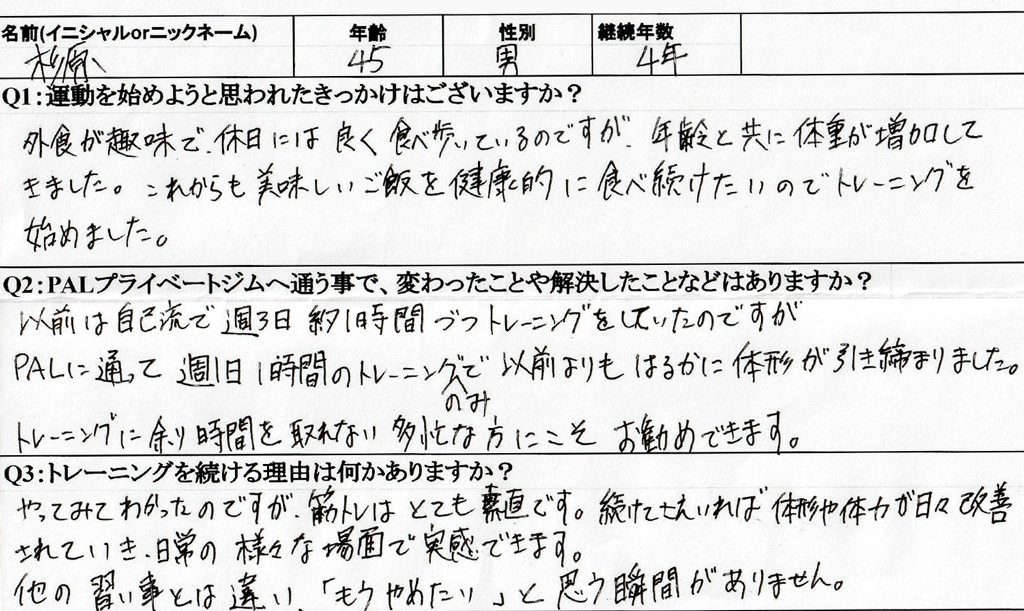 名前(イニシャルorニックネーム) 年齢 性別 継続年数
杉原 45 男 4年
Q1:運動を始めようと思われたきっかけはございますか?
外食が趣味で、休日には良く食べ歩いているのですが、年齢と共に体重が増加して
きました。これからも美味しいご飯を健康的に食べ続けたいのでトレーニングを
始めました。
Q2:PALプライベートジムへ通う事で、変わったことや解決したことなどはありますか?
以前は自己流で週3日約1時間づつトレーニングをしていたのですが
PALに通って週1日1時間のトレーニングのみで以前よりもはるかに体形が引き締まりました。
トレーニングに余り時間を取れない多忙な方にこそお勧めできます。
Q3:トレーニングを続ける理由は何かありますか?
やってみてわかったのですが、筋トレはとても素直です。続けてさえいれば体形や体力が日々改善
されていき、日常の様々な場面で実感できます。
他の習い事とは違い、「もうやめたい」と思う瞬間がありません。